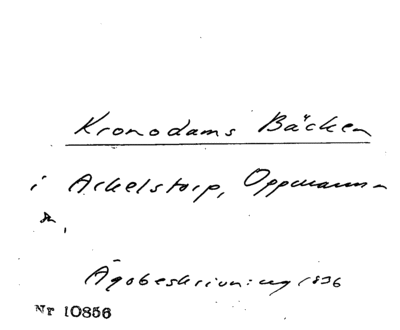 Kronodams Bäcken
i Arkelstorp, Oppmanna
Ägobeskrivning 1836
Nr 10856